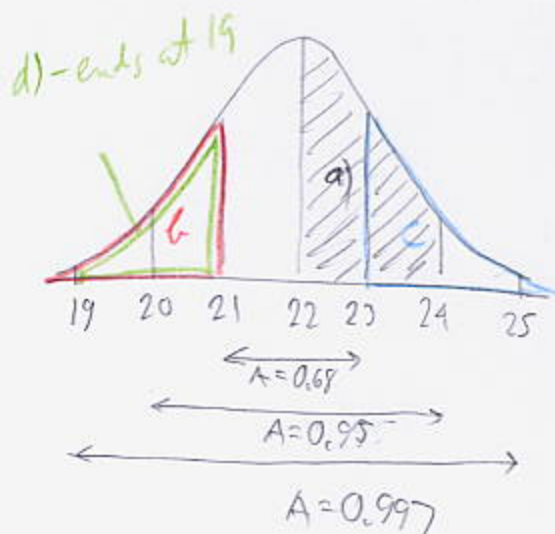 d)-ends at 19
a)
b
c
19 20 21 22 23 24 25
A=0.68
A=0.95
A=0.997